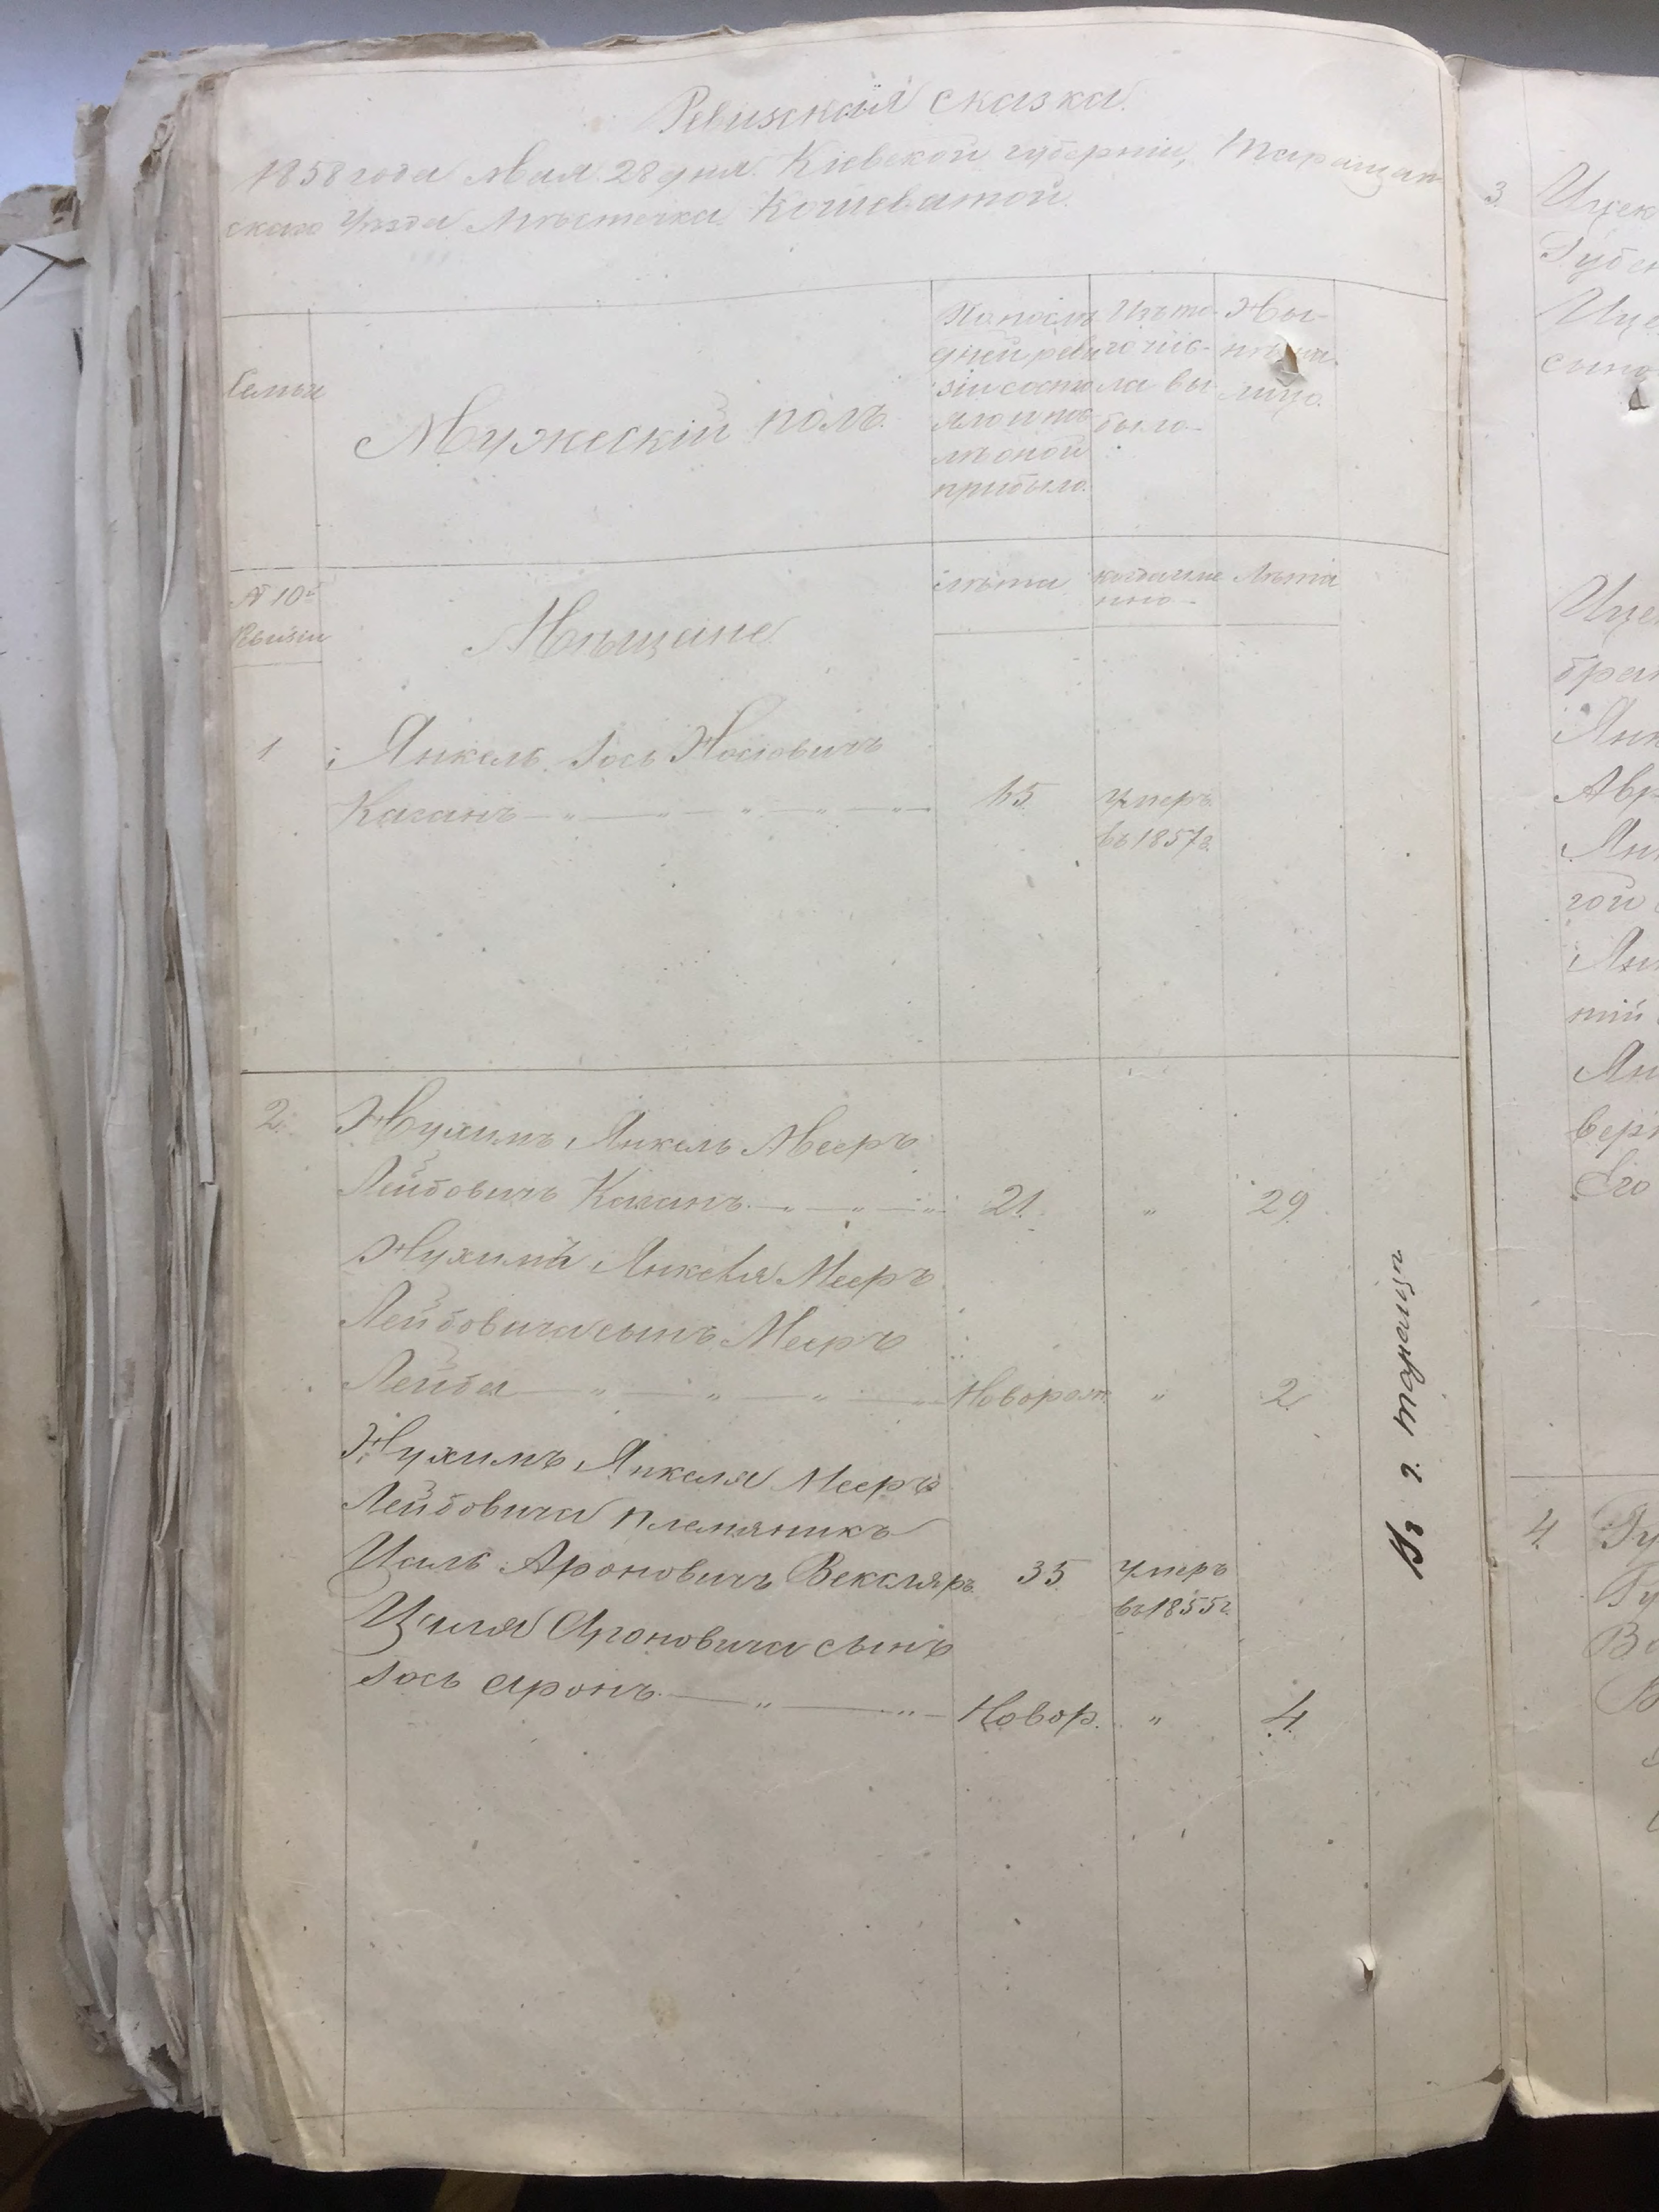 Ревизская сказка.
1858 года Мая 28 дня. Кіевской губерніи, Таращан-
скаго Уѣзда Мѣстечка Кошеватой.
Семьи
Мужескій полъ.
По послѣ-
дней реви-
зіи состо
яло и пос
лѣ оной
прибыло.
Изъ то-
го чис-
ла вы
было
Ны-
нѣ на
лицо.
№ 10й
Ревизіи
Мѣщане
лѣта
когда име
нно
Лѣта
1
Янкель Іось Носовичъ
Каганъ
45
Умеръ
въ 1857г.
2.
Нухимъ Янкель Мееръ
Лейбовичъ Каганъ
21.
"
29.
Нухима Янкеля Мееръ
Лейбовича сынъ Мееръ
Лейба
Новорож.
"
2
Нухимъ Янкеля Мееръ
Лейбовича племяникъ
Цаль Ароновичъ Векслярь
35
Умеръ
въ 1855г.
Цаля Ароновича сынъ
Іось Аронъ
Новор.
"
4.
Въ г. Таращи
3.
4.